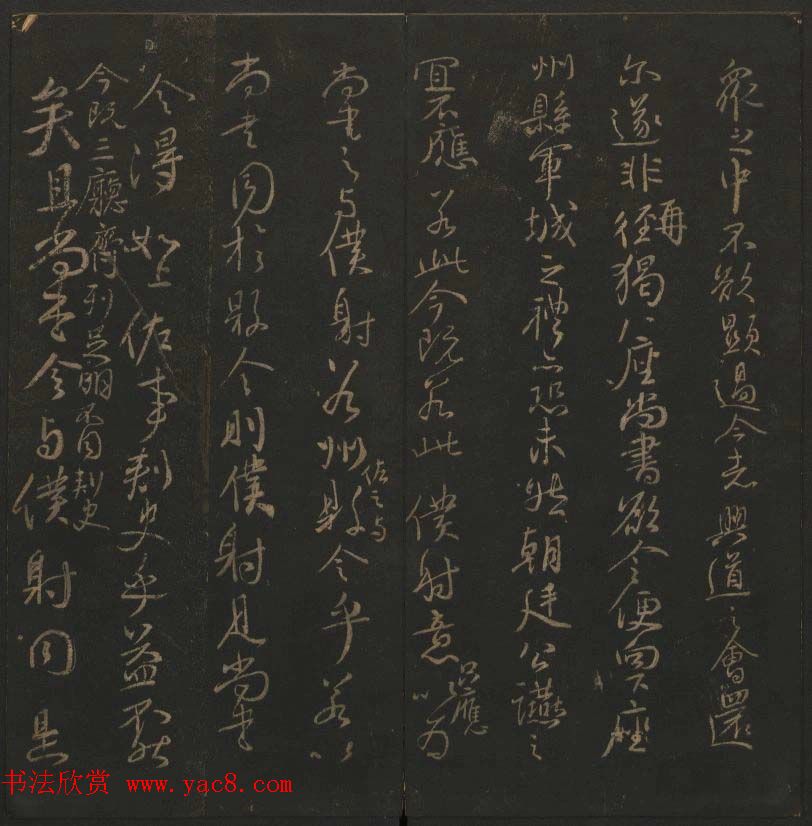 眾之中不欲顯過今者興道之會還
尔遂非再徑獨八座尚書欲令便向下座
州縣軍城之禮亦恐未然朝廷公讌之
宜不應若此今既若此僕射意只應以為
尚書之與僕射若州佐之與縣令乎若以
尚書同於縣令則僕射見尚書
令得如上佐事刺史乎益不然
今既三廳齊列足明不同刺史
矣且尚書令與僕射同是
书法欣赏 www.yac8.com